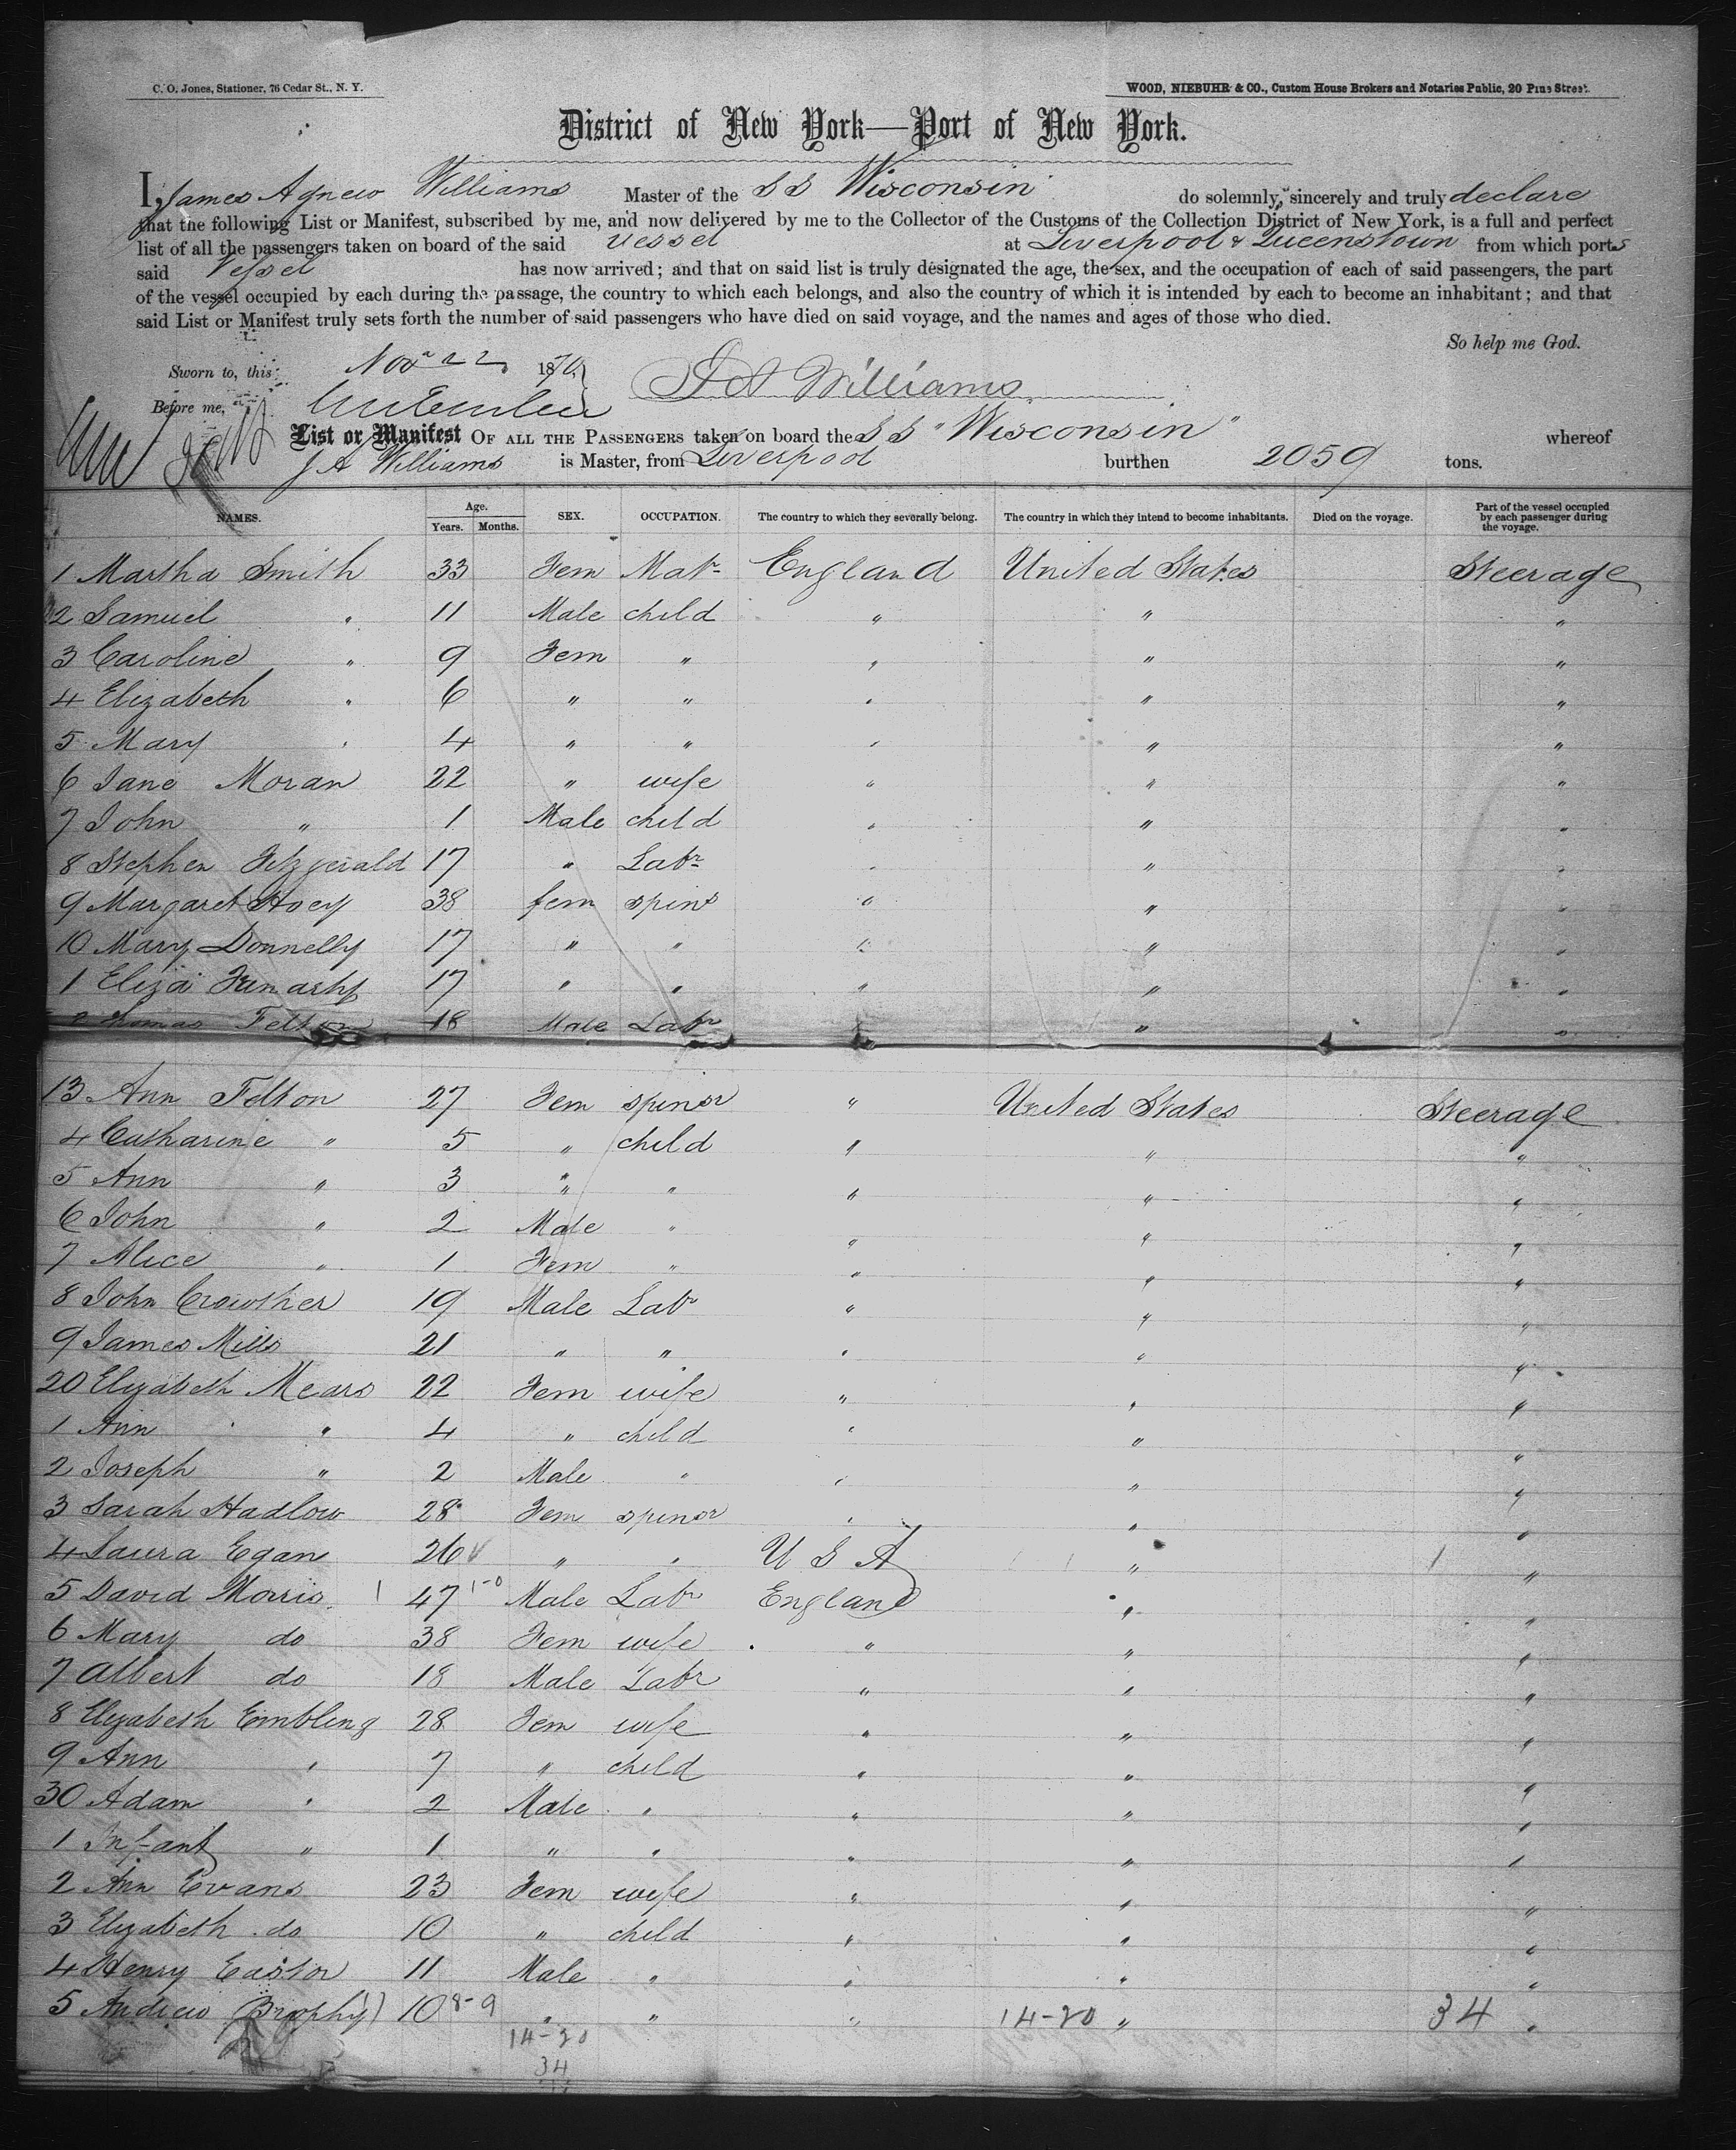 C. O. Jones, Stationer, 76 Cedar St., N. Y.
WOOD, NIEBUHR & CO., Custom House Brokers and Notaries Public, 20 Pine Street.
District of New York—Port of New York.
I, James Agnew Williams Master of the S S Wisconsin do solemnly, sincerely and truly declare
that the following List or Manifest, subscribed by me, and now delivered by me to the Collector of the Customs of the Collection District of New York, is a full and perfect
list of all the passengers taken on board of the said vessel at Liverpool & Queenstown from which ports
said vessel has now arrived; and that on said list is truly designated the age, the sex, and the occupation of each of said passengers, the part
of the vessel occupied by each during the passage, the country to which each belongs, and also the country of which it is intended by each to become an inhabitant; and that
said List or Manifest truly sets forth the number of said passengers who have died on said voyage, and the names and ages of those who died.
So help me God.
Sworn to, this Nov 22 1870
J A Williams
Before me,
List or Manifest OF ALL THE PASSENGERS taken on board the S S "Wisconsin" whereof
J A Williams is Master, from Liverpool burthen 2059 tons.
NAMES. Age. Years. Months. SEX. OCCUPATION. The country to which they severally belong. The country in which they intend to become inhabitants. Died on the voyage. Part of the vessel occupied by each passenger during the voyage.
1 Martha Smith 33 Fem Matr England United States Steerage
2 Samuel " 11 Male child " " "
3 Caroline " 9 Fem " " " "
4 Elizabeth " 6 " " " " "
5 Mary " 4 " " " " "
6 Jane Moran 22 " wife " " "
7 John " 1 Male child " " "
8 Stephen Fitzgerald 17 " Labr " " "
9 Margaret Hoey 38 fem spins " " "
10 Mary Donnelly 17 " " " " "
1 Eliza 17 " " " " "
2 Thomas Felton 18 Male Labr " "
13 Ann Felton 27 Fem spinsr " United States Steerage
4 Catharine " 5 " child " " "
5 Ann " 3 " " " " "
6 John " 2 Male " " " "
7 Alice " 1 Fem " " " "
8 John Crowther 19 Male Labr " " "
9 James Mills 21 " " " " "
20 Elizabeth Mears 22 Fem wife " " "
1 Ann " 4 " child " " "
2 Joseph " 2 Male " " " "
3 Sarah Hadlow 28 Fem spinsr " " "
4 Laura Egan 26 " " U S A " "
5 David Morris 47 1-0 Male Labr England " "
6 Mary do 38 Fem wife " " "
7 Albert do 18 Male Labr " " "
8 Elizabeth Embling 28 Fem wife " " "
9 Ann " 7 " child " " "
30 Adam " 2 Male " " " "
1 Infant " 1 " " " " "
2 Ann Evans 23 Fem wife " " "
3 Elizabeth do 10 " child " " "
4 Henry Easton 11 Male " " " "
5 Andrew Brophy 10 8-9 " " " 14-20 " 34 "
14-20
34